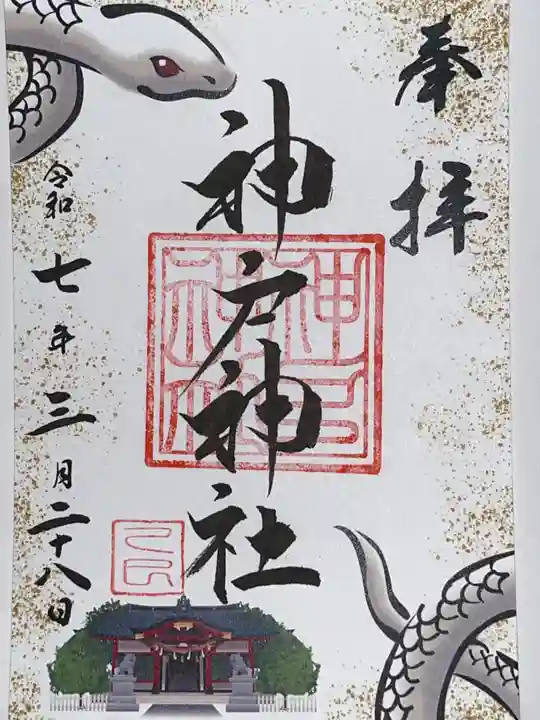 奉拝
神戸神社
令和七年三月二十八日
神戸神社